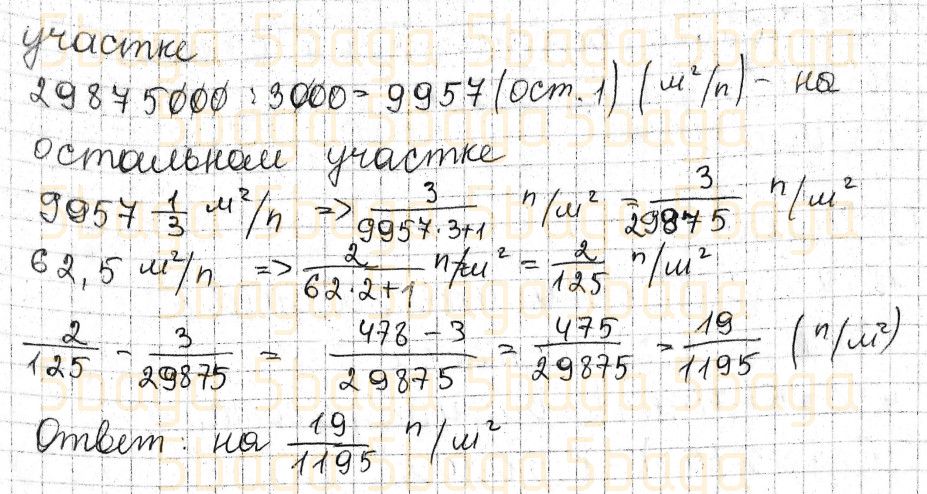 участке
29875000 : 3000 = 9957 (ост. 1) (м²/п) - на
остальном участке
9957 1/3 м²/п => 3/(9957·3+1) п/м² = 3/29875 п/м²
62,5 м²/п => 2/(62·2+1) п/м² = 2/125 п/м²
2/125 - 3/29875 = (478 - 3)/29875 = 475/29875 = 19/1195 (п/м²)
Ответ: на 19/1195 п/м²